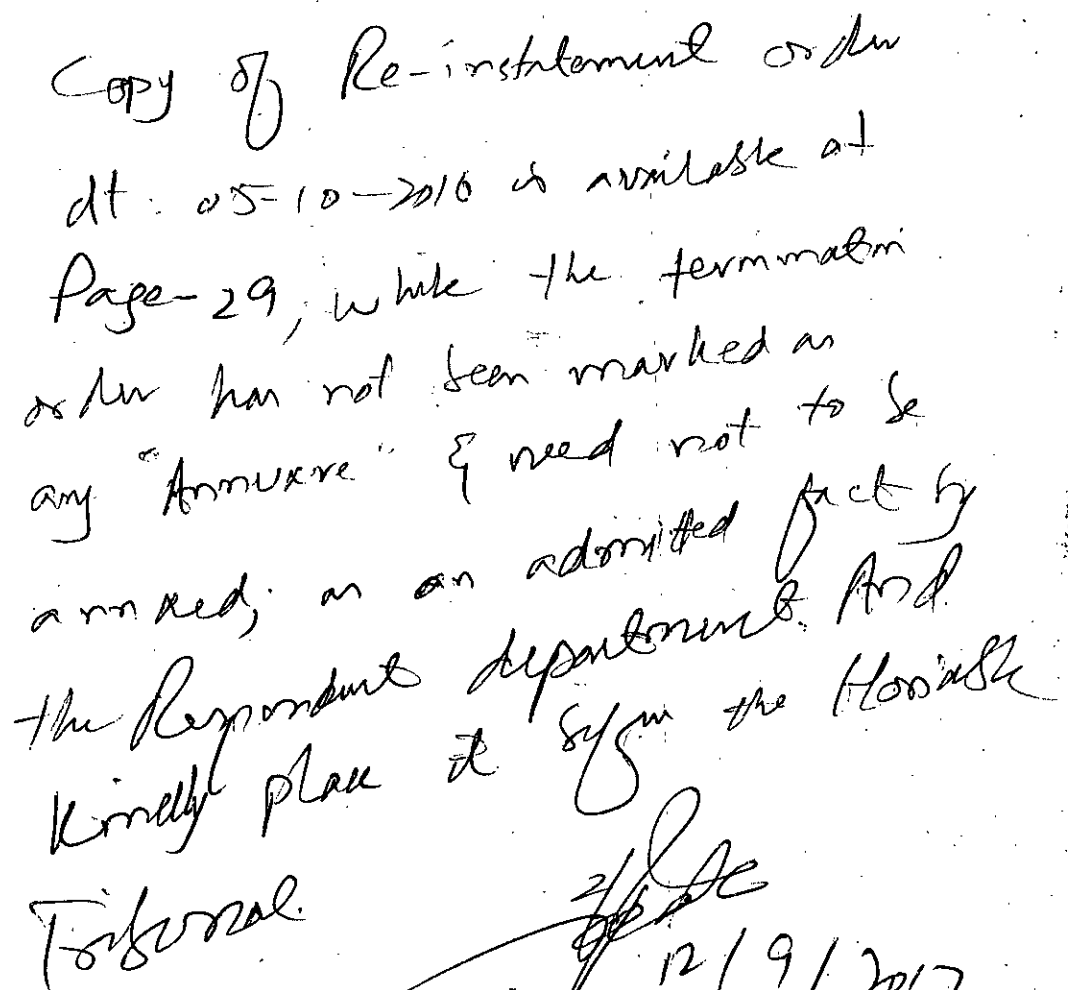 Copy of Re-instatement order
dt. 05-10-2016 is available at
Page-29, while the termination
order has not been marked as
any "Annuxre" & need not to be
annxed, as an admitted fact by
the Respondent department. And
Kindly place it before the Hon'able
Tribunal.
12/9/2017